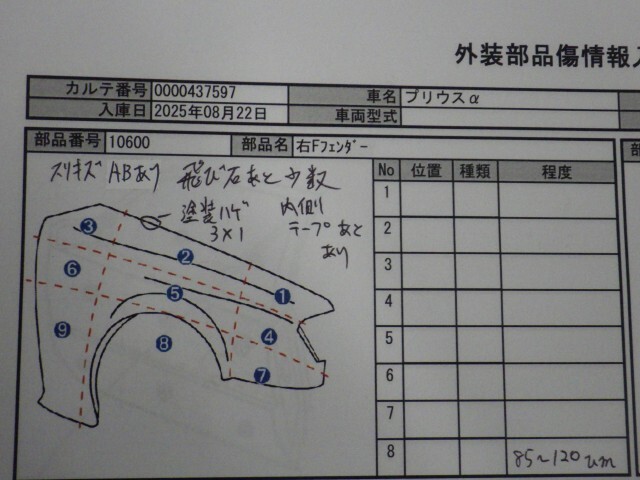 外装部品傷情報
カルテ番号 0000437597 車名 プリウスα
入庫日 2025年08月22日 車両型式
部品番号 10600 部品名 右Fフェンダー
スリキズ ABあり 飛び石あと少数
塗装ハゲ
3×1
内側
テープあと
あり
No 位置 種類 程度
1
2
3
4
5
6
7
8 85~120um
3
2
6
5
1
9
8
4
7